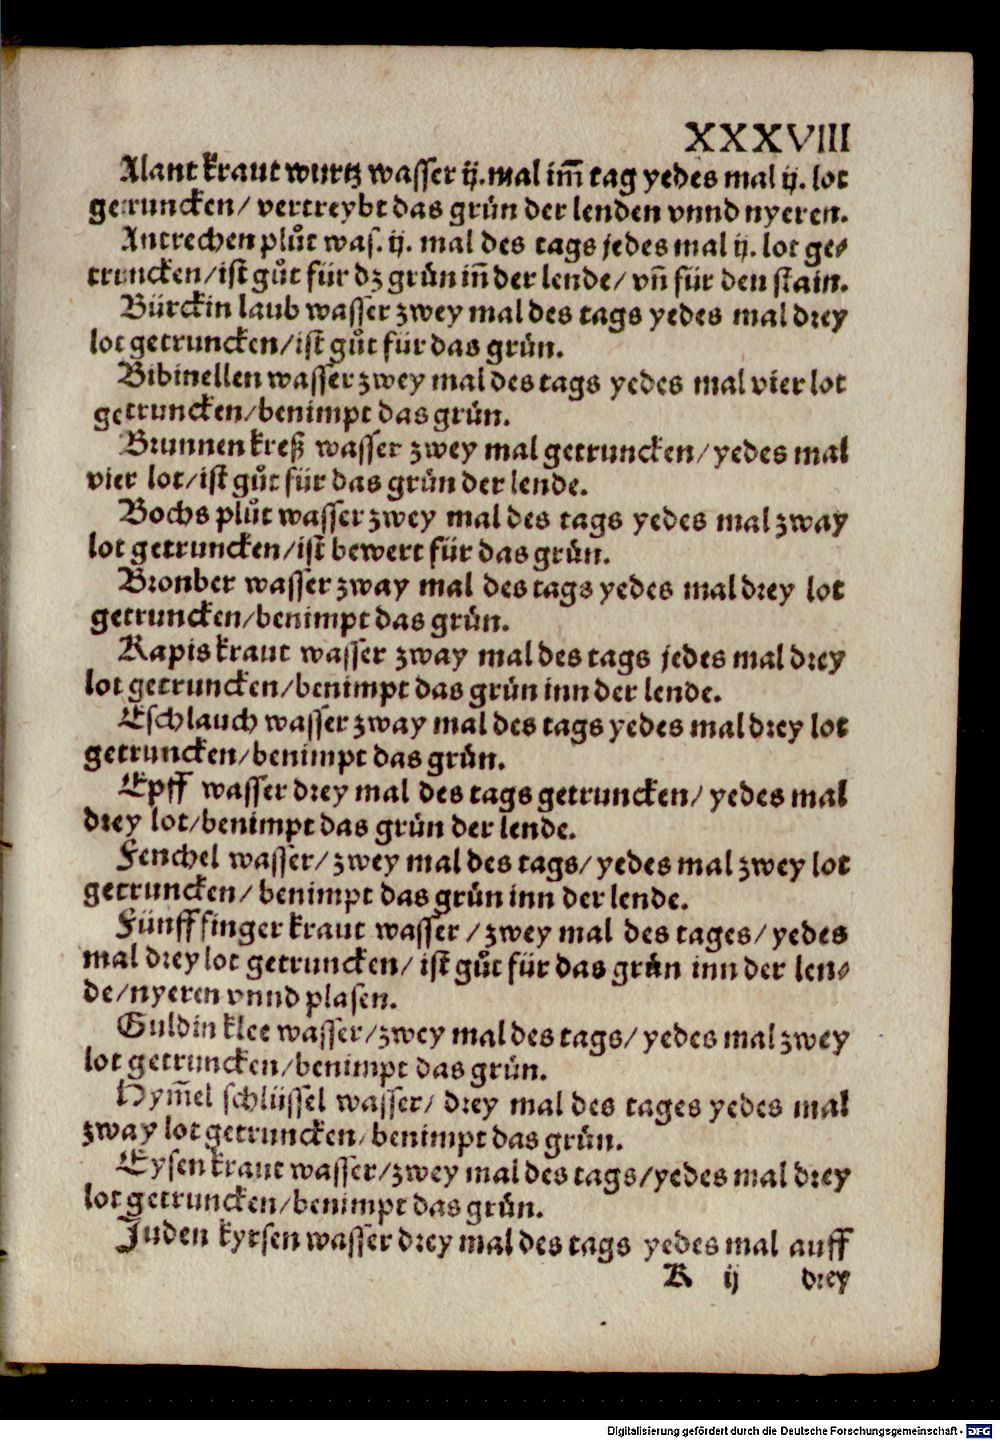 XXXVIII
Alant kraut wurtz wasser ij. mal im̄ tag yedes mal ij. lot
getruncken/ vertreybt das grün der lenden vnnd nyeren.
Antrechen plůt was. ij. mal des tags jedes mal ij. lot ge⸗
truncken/ist gůt für dz grün iñ der lende/ vñ für den stain.
Bürckin laub wasser zwey mal des tags yedes mal drey
lot getruncken/ist gůt für das grün.
Bibinellen wasser zwey mal des tags yedes mal vier lot
getruncken/benimpt das grün.
Brunnen kreß wasser zwey mal getruncken/ yedes mal
vier lot/ist gůt für das grün der lende.
Bochs plůt wasser zwey mal des tags yedes mal zway
lot getruncken/ist bewert für das grün.
Bronber wasser zway mal des tags yedes mal drey lot
getruncken/benimpt das grün.
Kapis kraut wasser zway mal des tags jedes mal drey
lot getruncken/benimpt das grün inn der lende.
Eschlauch wasser zway mal des tags yedes mal drey lot
getruncken/benimpt das grün.
Epff wasser drey mal des tags getruncken/ yedes mal
drey lot/benimpt das grün der lende.
Fenchel wasser/ zwey mal des tags/ yedes mal zwey lot
getruncken/ benimpt das grün inn der lende.
Fünff finger kraut wasser / zwey mal des tages/ yedes
mal drey lot getruncken/ ist gůt für das grün inn der len⸗
de/nyeren vnnd plasen.
Guldin klee wasser/zwey mal des tags/ yedes mal zwey
lot getruncken/benimpt das grün.
Hym̄el schlüssel wasser/ drey mal des tages yedes mal
zway lot getruncken/benimpt das grün.
Eysen kraut wasser/zwey mal des tags/yedes mal drey
lot getruncken/benimpt das grün.
Juden kyrsen wasser drey mal des tags yedes mal auff
K ij drey
Digitalisierung gefördert durch die Deutsche Forschungsgemeinschaft - DFG